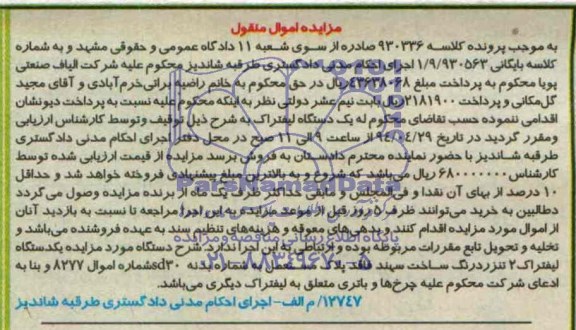 مزایده اموال منقول
به موجب پرونده کلاسه ۹۳۰۳۳۶ صادره از سوی شعبه ۱۱ دادگاه عمومی و حقوقی مشهد و به شماره
کلاسه بایگانی ۱/۹/۹۳۰۵۶۳ اجرای احکام مدنی دادگستری طرقبه شاندیز محکوم علیه شرکت الیاف صنعتی
پویا محکوم به پرداخت مبلغ ۴۳۶۳۸۰۶۸ ریال در حق محکوم به خانم راضیه براتی خرم آبادی و آقای مجید
گل مکانی و پرداخت ۲۱۸۱۹۰۰ ریال بابت نیم عشر دولتی نظر به اینکه محکوم علیه نسبت به پرداخت دیونشان
اقدامی ننموده حسب تقاضای محکوم له یک دستگاه لیفتراک به شرح ذیل توقیف و توسط کارشناس ارزیابی
ومقرر گردید در تاریخ ۹۴/۰۴/۲۹ از ساعت ۹ الی ۱۱ صبح در محل دفتر اجرای احکام مدنی دادگستری
طرقبه شاندیز با حضور نماینده محترم دادستان به فروش برسد مزایده از قیمت ارزیابی شده توسط
کارشناس ۶۸۰۰۰۰۰۰۰ ریال می باشد که شروع و به بالاترین مبلغ پیشنهادی فروخته خواهد شد و حداقل
۱۰ درصد از بهای آن نقدا و فی المجلس و مابقی حداکثر ظرف یک ماه از برنده مزایده وصول می گردد
دطالبین به خرید می توانند ظرف ۵ روز قبل از موعد مزایده به این اجرا مراجعه تا نسبت به بازدید آنان
از اموال مورد مزایده اقدام کنند و بدهی های معوقه و هزینه های تنظیم سند به عهده فروشنده می باشد و
تخلیه و تحویل تابع مقررات مربوطه بوده و ارتباطی به این اجرا ندارد. شرح دستگاه مورد مزایده یکدستگاه
لیفتراک ۲ تنزردرنگ ساخت سهند فاقد پلاک شماره بدنه sd۳۰ شماره اموال ۸۲۷۷ و بنا به
ادعای شرکت محکوم علیه چرخ ها و باتری متعلق به لیفتراک دیگری می باشد.
۱۲۷۴۷/ م الف- اجرای احکام مدنی دادگستری طرقبه شاندیز
ParsNamadData
پایگاه اطلاع رسانی مناقصه و مزایده
۰۲۱-۸۸۳۴۹۶۷۰-۵